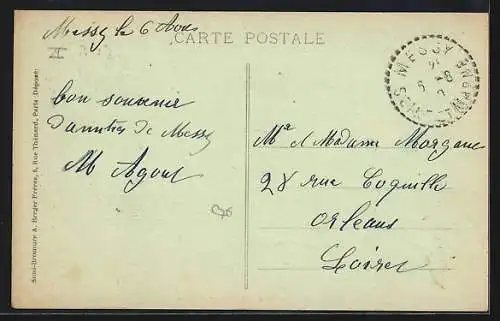 Messy le 6 Aout
CARTE POSTALE
MESSY
SEINE-ET-MARNE
bon souvenir
d'amitiés de Messy
M Agout
Mr et Madame Morgane
28 rue Coquille
Orléans
Loiret
Semi-Bromure A. Breger Frères, 9, Rue Thénard, Paris (Déposé)